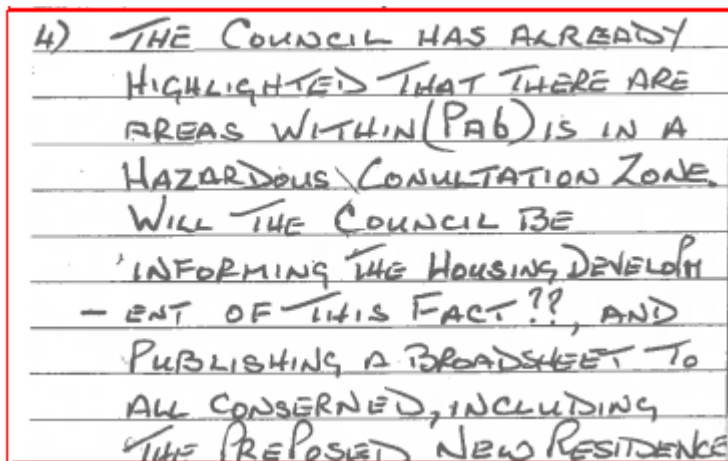 4) THE COUNCIL HAS ALREADY
HIGHLIGHTED THAT THERE ARE
AREAS WITHIN (PA6) IS IN A
HAZARDOUS\CONULTATION ZONE.
WILL THE COUNCIL BE
INFORMING THE HOUSING DEVELOPM
- ENT OF THIS FACT??, AND
PUBLISHING A BROADSHEET TO
ALL CONSERNED, INCLUDING
THE PREPOSED NEW RESIDENCE